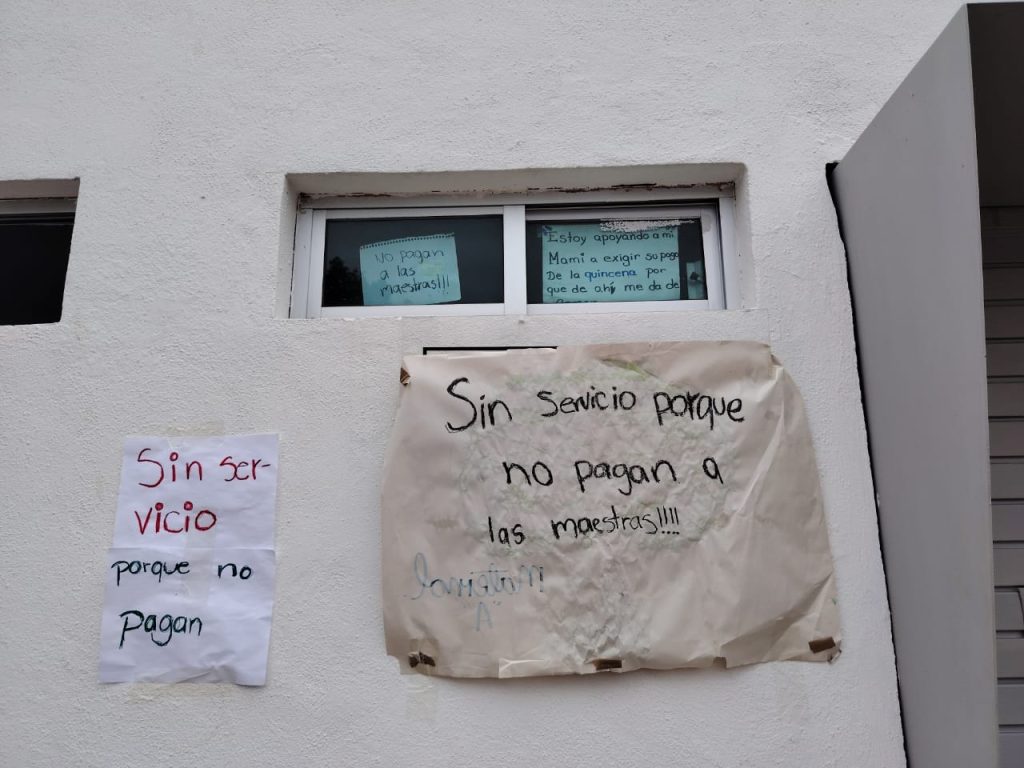 No pagan
a las
maestras!!!
Estoy apoyando a mi
Mami a exigir su pago
De la quincena por
que de ahí me da de
Sin servicio porque
no pagan a
las maestras!!!!
Maternal
"A"
Sin ser-
vicio
porque no
Pagan